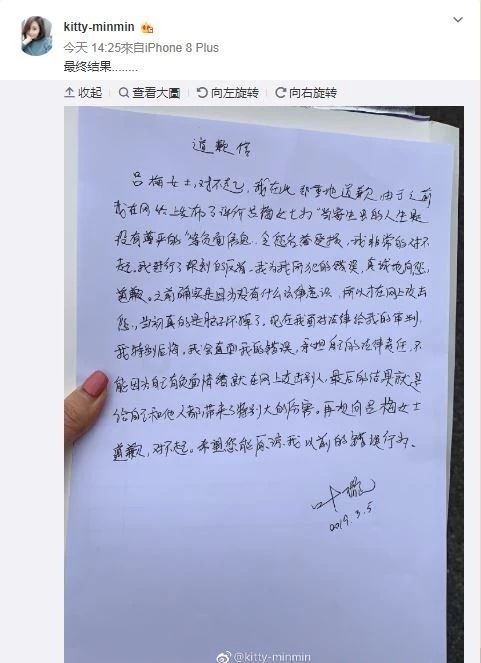 kitty-minmin
今天 14:25來自iPhone 8 Plus
最终结果........
收起 查看大圖 向左旋转 向右旋转
道歉信
吕梅女士,对不起,我在此郑重地道歉,由于之前
我在网络上发布了评价吕梅女士为“当寄生虫的人生是
没有尊严的”等负面信息,令您名誉受损,我非常的对不
起。我进行了深刻的反省,我为我所犯的错误,真诚地向您
道歉。之前确实是因为没有什么法律意识,所以才在网上攻击
您,当初真的是脑子不清醒了。现在我面对法律给我的审判,
我特别后悔。我会直面我的错误,承担自己的法律责任,不
能因为自己有负面情绪就在网上攻击别人,最后的结果就是
给自己和他人都带来了特别大的伤害。再次向吕梅女士
道歉,对不起。希望您能原谅我以前的错误行为。
叶璇
2019.3.5
@kitty-minmin